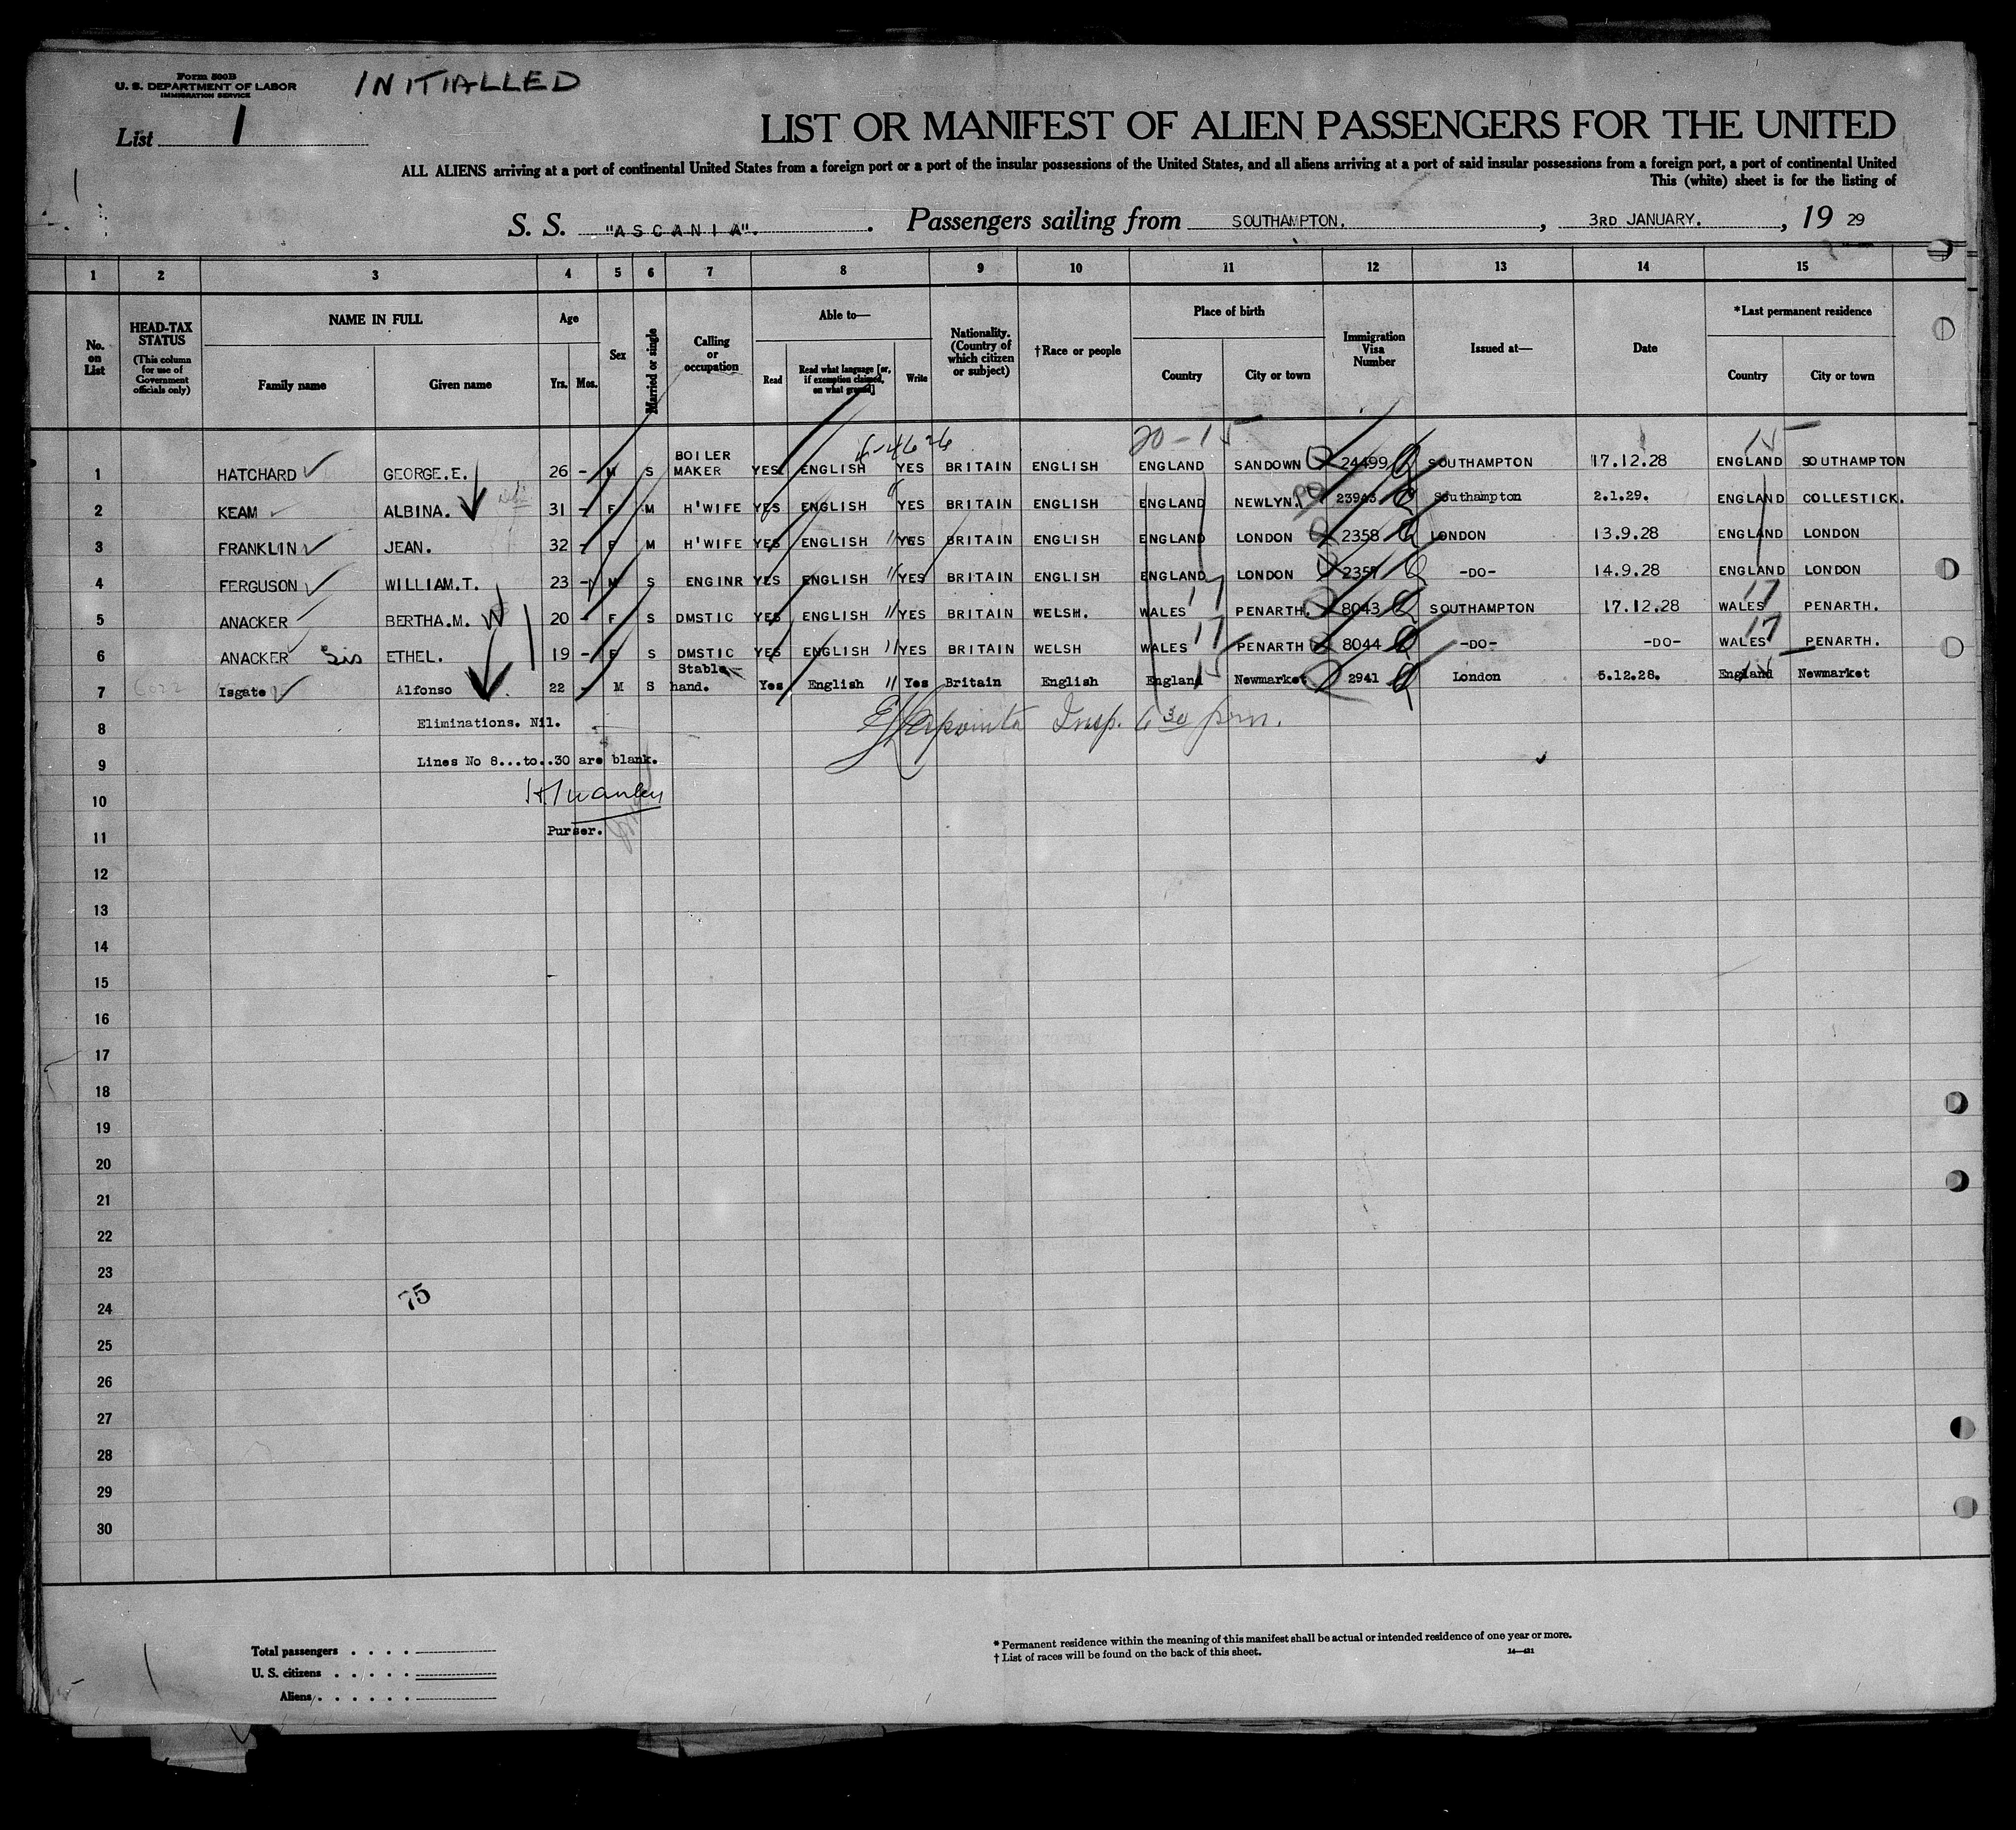 Form 500B
U. S. DEPARTMENT OF LABOR
IMMIGRATION SERVICE
INITIALLED
List 1
LIST OR MANIFEST OF ALIEN PASSENGERS FOR THE UNITED
ALL ALIENS arriving at a port of continental United States from a foreign port or a port of the insular possessions of the United States, and all aliens arriving at a port of said insular possessions from a foreign port, a port of continental United
This (white) sheet is for the listing of
S. S. "ASCANIA". Passengers sailing from SOUTHAMPTON. , 3RD JANUARY. , 19 29
1 2 3 4 5 6 7 8 9 10 11 12 13 14 15
No. on List
HEAD-TAX STATUS
(This column for use of Government officials only)
NAME IN FULL
Family name
Given name
Age
Yrs. Mos.
Sex
Married or single
Calling or occupation
Able to—
Read
Read what language [or, if exemption claimed, on what ground]
Write
Nationality. (Country of which citizen or subject)
†Race or people
Place of birth
Country
City or town
Immigration Visa Number
Issued at—
Date
*Last permanent residence
Country
City or town
20-15 15
1 HATCHARD GEORGE.E. 26 - M S BOILER MAKER YES ENGLISH YES BRITAIN ENGLISH ENGLAND SANDOWN 24499 SOUTHAMPTON 17.12.28 ENGLAND SOUTHAMPTON
2 KEAM ALBINA. 31 - F M H'WIFE YES ENGLISH " YES BRITAIN ENGLISH ENGLAND NEWLYN. Southampton 2.1.29. ENGLAND COLLESTICK.
3 FRANKLIN JEAN. 32 - F M H'WIFE YES ENGLISH " YES BRITAIN ENGLISH ENGLAND LONDON 2358 LONDON 13.9.28 ENGLAND LONDON
4 FERGUSON WILLIAM.T. 23 - M S ENGINR YES ENGLISH " YES BRITAIN ENGLISH ENGLAND LONDON -DO- 14.9.28 ENGLAND LONDON
5 ANACKER BERTHA.M. 20 - F S DMSTIC YES ENGLISH " YES BRITAIN WELSH. WALES 17 PENARTH. 8043 SOUTHAMPTON 17.12.28 WALES 17 PENARTH.
6 ANACKER Sis ETHEL. 19 - F S DMSTIC YES ENGLISH " YES BRITAIN WELSH WALES 17 PENARTH 8044 -DO- -DO- WALES 17 PENARTH.
7 Isgate Alfonso 22 - M S Stable hand. Yes English " Yes Britain English England 15 Newmarket 2941 London 5.12.28. England 15 Newmarket
8 Eliminations. Nil. Insp. 6 30 pm.
9 Lines No 8...to..30 are blank.
10
11 Purser.
12
13
14
15
16
17
18
19
20
21
22
23
24 75
25
26
27
28
29
30
Total passengers . . . .
U. S. citizens . . . . .
Aliens . . . . . .
* Permanent residence within the meaning of this manifest shall be actual or intended residence of one year or more.
† List of races will be found on the back of this sheet.
14—421